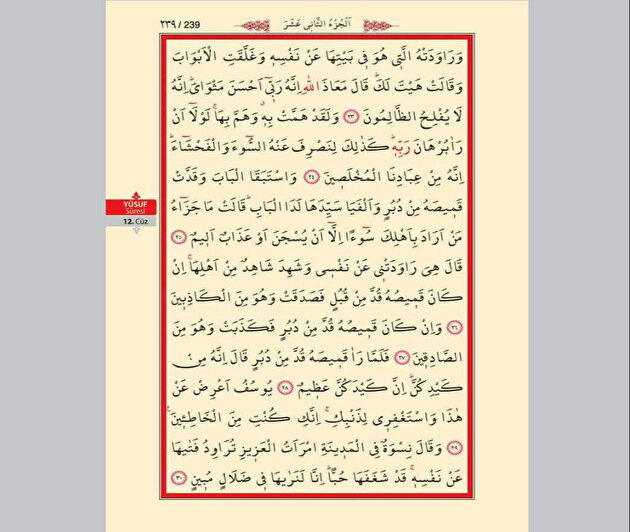 ٢٣٩ / 239
اَلْجُزْءُ الثَّانِي عَشَرَ
وَرَاوَدَتْهُ الَّتٖي هُوَ فٖي بَيْتِهَا عَنْ نَفْسِهٖ وَغَلَّقَتِ الْاَبْوَابَ
وَقَالَتْ هَيْتَ لَكَۜ قَالَ مَعَاذَ اللّٰهِ اِنَّهُ رَبّٖٓي اَحْسَنَ مَثْوَايَۜ اِنَّهُ
لَا يُفْلِحُ الظَّالِمُونَ ﴿٢٣﴾ وَلَقَدْ هَمَّتْ بِهٖۚ وَهَمَّ بِهَاۚ لَوْلَٓا اَنْ
رَاٰ بُرْهَانَ رَبِّهٖۜ كَذٰلِكَ لِنَصْرِفَ عَنْهُ السُّٓوءَ وَالْفَحْشَٓاءَۜ
اِنَّهُ مِنْ عِبَادِنَا الْمُخْلَصٖينَ ﴿٢٤﴾ وَاسْتَبَقَا الْبَابَ وَقَدَّتْ
قَمٖيصَهُ مِنْ دُبُرٍ وَاَلْفَيَا سَيِّدَهَا لَدَا الْبَابِۜ قَالَتْ مَا جَزَٓاءُ
مَنْ اَرَادَ بِاَهْلِكَ سُٓوءًا اِلَّٓا اَنْ يُسْجَنَ اَوْ عَذَابٌ اَلٖيمٌ ﴿٢٥﴾
YÛSUF
Sûresi
12. Cüz
قَالَ هِيَ رَاوَدَتْنٖي عَنْ نَفْسٖي وَشَهِدَ شَاهِدٌ مِنْ اَهْلِهَاۚ اِنْ
كَانَ قَمٖيصُهُ قُدَّ مِنْ قُبُلٍ فَصَدَقَتْ وَهُوَ مِنَ الْكَاذِبٖينَ
﴿٢٦﴾ وَاِنْ كَانَ قَمٖيصُهُ قُدَّ مِنْ دُبُرٍ فَكَذَبَتْ وَهُوَ مِنَ
الصَّادِقٖينَ ﴿٢٧﴾ فَلَمَّا رَاٰ قَمٖيصَهُ قُدَّ مِنْ دُبُرٍ قَالَ اِنَّهُ مِنْ
كَيْدِكُنَّۜ اِنَّ كَيْدَكُنَّ عَظٖيمٌ ﴿٢٨﴾ يُوسُفُ اَعْرِضْ عَنْ
هٰذَا وَاسْتَغْفِرٖي لِذَنْبِكِۚ اِنَّكِ كُنْتِ مِنَ الْخَاطِـٖٔينَ
﴿٢٩﴾ وَقَالَ نِسْوَةٌ فِي الْمَدٖينَةِ امْرَاَتُ الْعَزٖيزِ تُرَاوِدُ فَتٰيهَا
عَنْ نَفْسِهٖۚ قَدْ شَغَفَهَا حُبًّاۜ اِنَّا لَنَرٰيهَا فٖي ضَلَالٍ مُبٖينٍ ﴿٣٠﴾